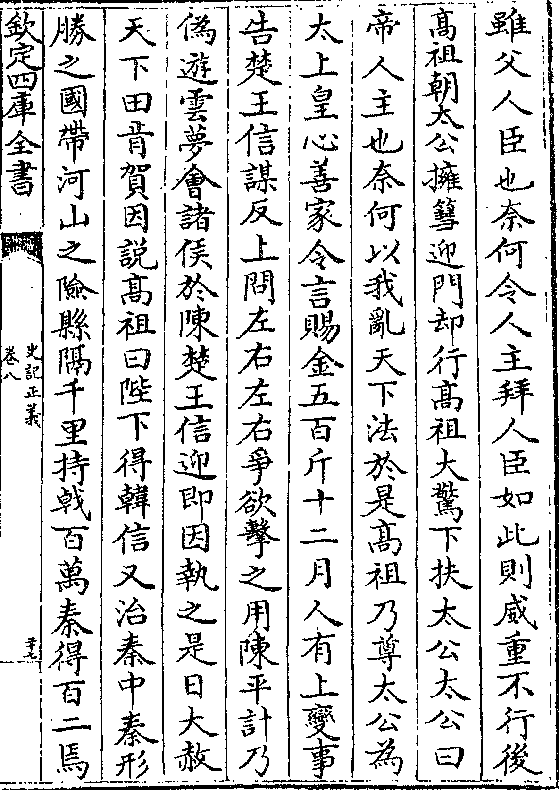 雖父人臣也奈何令人主拜人臣如此則威重不行後
髙祖朝太公擁篲迎門却行髙祖大驚下扶太公太公曰
帝人主也奈何以我亂天下法於是髙祖乃尊太公為
太上皇心善家令言賜金五百斤十二月人有上變事
告楚王信謀反上問左右左右爭欲擊之用陳平計乃
偽遊雲夢會諸侯於陳楚王信迎即因執之是日大赦
天下田肯賀因説髙祖曰陛下得韓信又治秦中秦形
勝之國帶河山之險縣隔千里持㦸百萬秦得百二焉
欽定四庫全書
史記正義
卷八